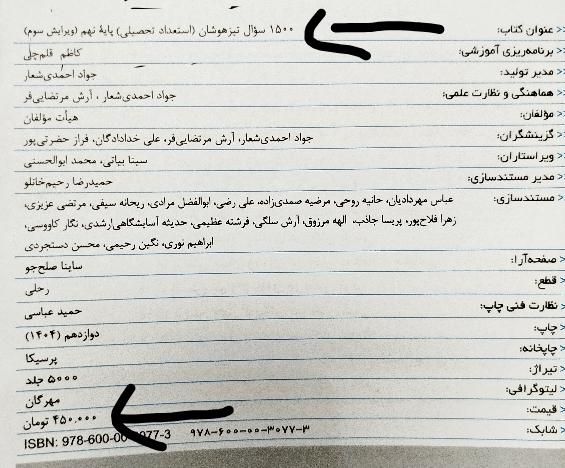 >> عنوان کتاب: ۱۵۰۰ سؤال تیزهوشان (استعداد تحصیلی) پایهٔ نهم (ویرایش سوم)
>> برنامه‌ریزی آموزشی: کاظم قلم‌چی
>> مدیر تولید: جواد احمدی‌شعار
>> هماهنگی و نظارت علمی: جواد احمدی‌شعار ، آرش مرتضایی‌فر
>> مؤلفان: هیأت مؤلفان
>> گزینشگران: جواد احمدی‌شعار، آرش مرتضایی‌فر، علی خدادادگان، فراز حضرتی‌پور
>> ویراستاران: سینا بیاتی، محمد ابوالحسنی
>> مدیر مستندسازی: حمیدرضا رحیم‌خانلو
>> مستندسازی: عباس مهردادیان، حانیه روحی، مرضیه صمدی‌زاده، علی رضی، ابوالفضل مرادی، ریحانه سیفی، مرتضی عزیزی،
زهرا فلاح‌پور، پریسا جاذب، الهه مرزوق، آرش سلگی، فرشته عظیمی، حدیثه آسایشگاهی‌ارشدی، نگار کاووسی،
ابراهیم نوری، نگین رحیمی، محسن دستجردی
> صفحه‌آرا: ساینا صلح‌جو
> قطع: رحلی
> نظارت فنی چاپ: حمید عباسی
> چاپ: دوازدهم (۱۴۰۴)
> چاپخانه: پرسیکا
> تیراژ: ۵۰۰۰ جلد
> لیتوگرافی: مهرگان
> قیمت: ۴۵۰,۰۰۰ تومان
> شابک: ۹۷۸-۶۰۰-۰۰-۳۰۷۷-۳ ISBN: 978-600-00-3077-3